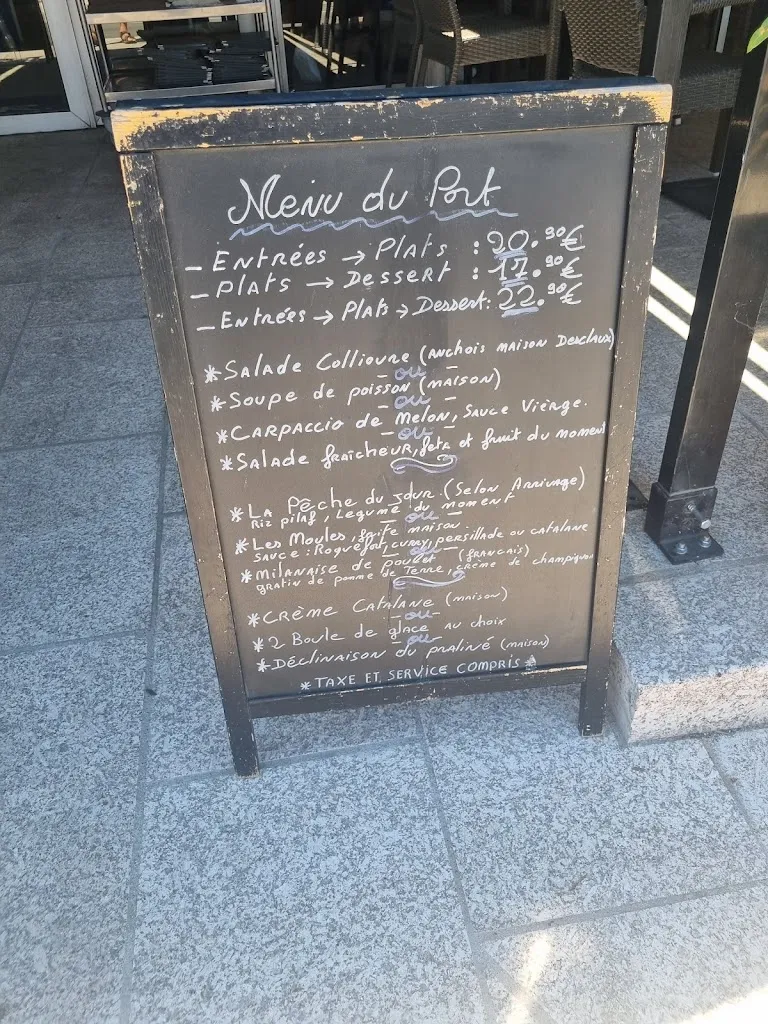 Menu du Port
- Entrées → Plats : 20.90€
- Plats → Dessert : 17.90€
- Entrées → Plats → Dessert : 22.90€
*Salade Collioure (anchois maison Desclaux)
- ou -
*Soupe de poisson (maison)
- ou -
*Carpaccio de Melon, Sauce Vierge.
- ou -
*Salade fraîcheur, feta et fruit du moment
*La Pêche du jour (Selon Arrivage)
Riz pilaf, Legume du moment
- ou -
*Les Moules, frite maison.
Sauce : Roquefort, curry, persillade ou catalane
- ou -
*Milanaise de poulet (français)
gratin de pomme de Terre, crème de champignon
*Crème Catalane (maison)
- ou -
*2 Boule de glace au choix
- ou -
*Déclinaison du praliné (maison)
*TAXE ET SERVICE COMPRIS*